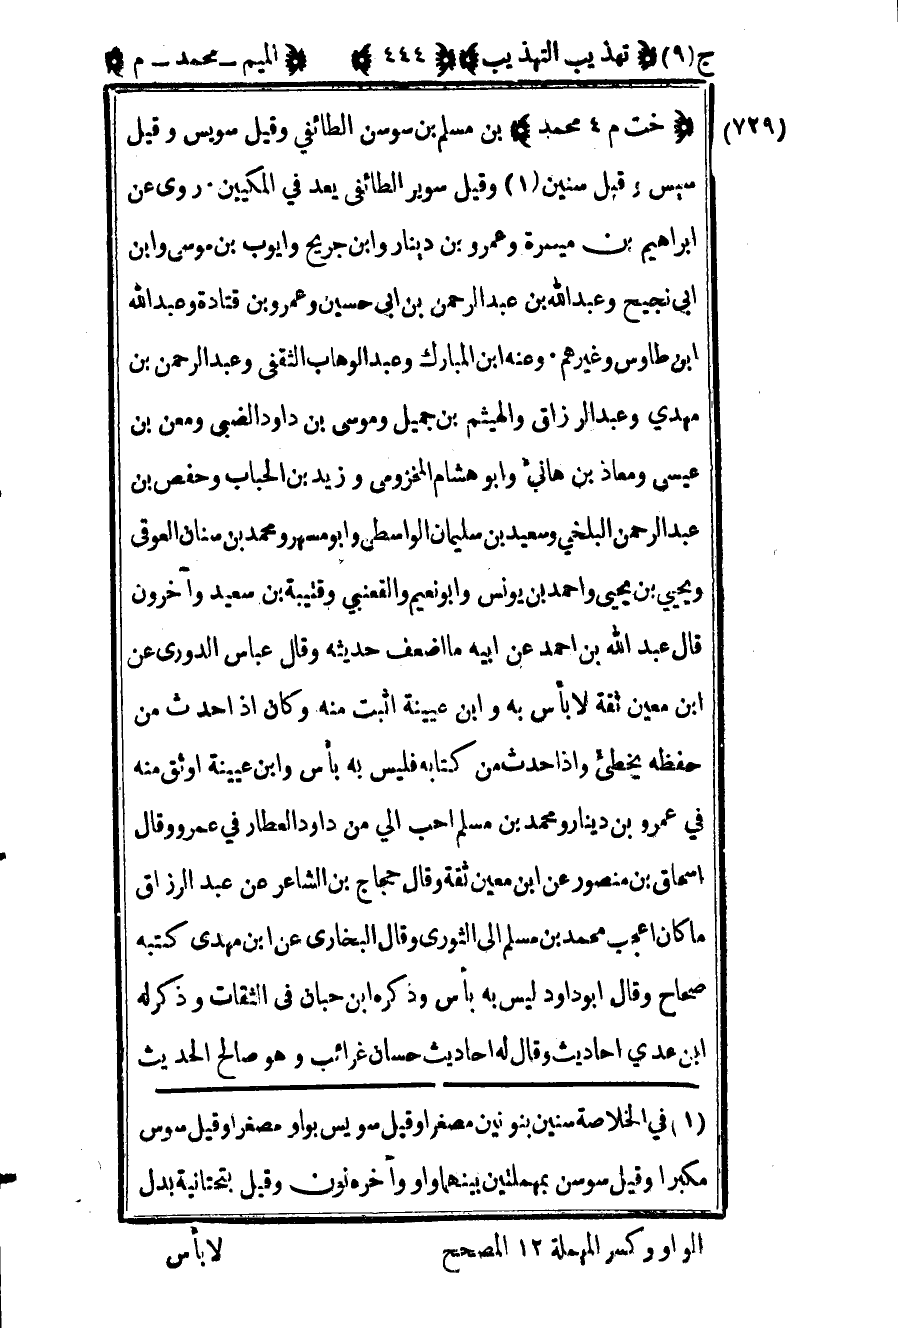 ج(٩) ﴿ تهذيب التهذيب ﴾ ﴿ ٤٤٤ ﴾ ﴿ الميم ـ محمد ـ م ﴾
(٧٢٩) ﴿ خت م ٤ محمد ﴾ بن مسلم بن سوسن الطائفي وقيل سويس وقيل
سيس وقيل سنين (١) وقيل سوير الطائفي يعد في المكيين. روى عن
ابراهيم بن ميسرة وعمرو بن دينار وابن جريج وايوب بن موسى وابن
ابي نجيح وعبد الله بن عبد الرحمن بن ابي حسين وعمرو بن قتادة وعبد الله
ابن طاوس وغيرهم. وعنه ابن المبارك وعبد الوهاب الثقفي وعبد الرحمن بن
مهدي وعبد الرزاق والهيثم بن جميل وموسى بن داود الضبي ومعن بن
عيسى ومعاذ بن هانئ وابو هشام المخزومي وزيد بن الحباب وحفص بن
عبد الرحمن البلخي وسعيد بن سليمان الواسطي وابو مسهر ومحمد بن سنان العوقي
ويحيي بن يحيى واحمد بن يونس وابو نعيم والقعنبي وقتيبة بن سعيد وآخرون
قال عبد الله بن احمد عن ابيه ما اضعف حديثه وقال عباس الدورى عن
ابن معين ثقة لا بأس به وابن عيينة اثبت منه وكان اذا حدث من
حفظه يخطئ واذا حدث من كتابه فليس به بأس وابن عيينة اوثق منه
في عمرو بن دينار ومحمد بن مسلم احب الي من داود العطار في عمرو وقال
اسحاق بن منصور عن ابن معين ثقة وقال حجاج بن الشاعر عن عبد الرزاق
ما كان اعجب محمد بن مسلم الى الثورى وقال البخارى عن ابن مهدى كتبه
صحاح وقال ابو داود ليس به بأس وذكره ابن حبان فى الثقات وذكر له
ابن عدي احاديث وقال له احاديث حسان غرائب وهو صالح الحديث
(١) في الخلاصة سنين بنونين مصغرا وقيل سويس بواو مصغرا وقيل سوس
مكبرا وقيل سوسن بمهملتين بينهما واو وآخره نون وقيل بتحتانية بدل
الواو وكسر المهملة ١٢ المصحح
لا بأس